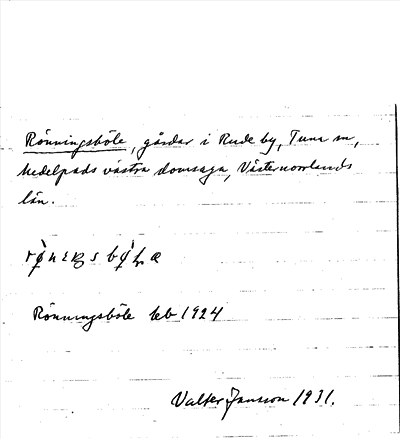 Rönningsböle, gårdar i Rude by, Tuna sn,
Medelpads västra domsaga, Västernorrlands
län.
Rönningsböle leb 1924
Valter Jansson 1931.